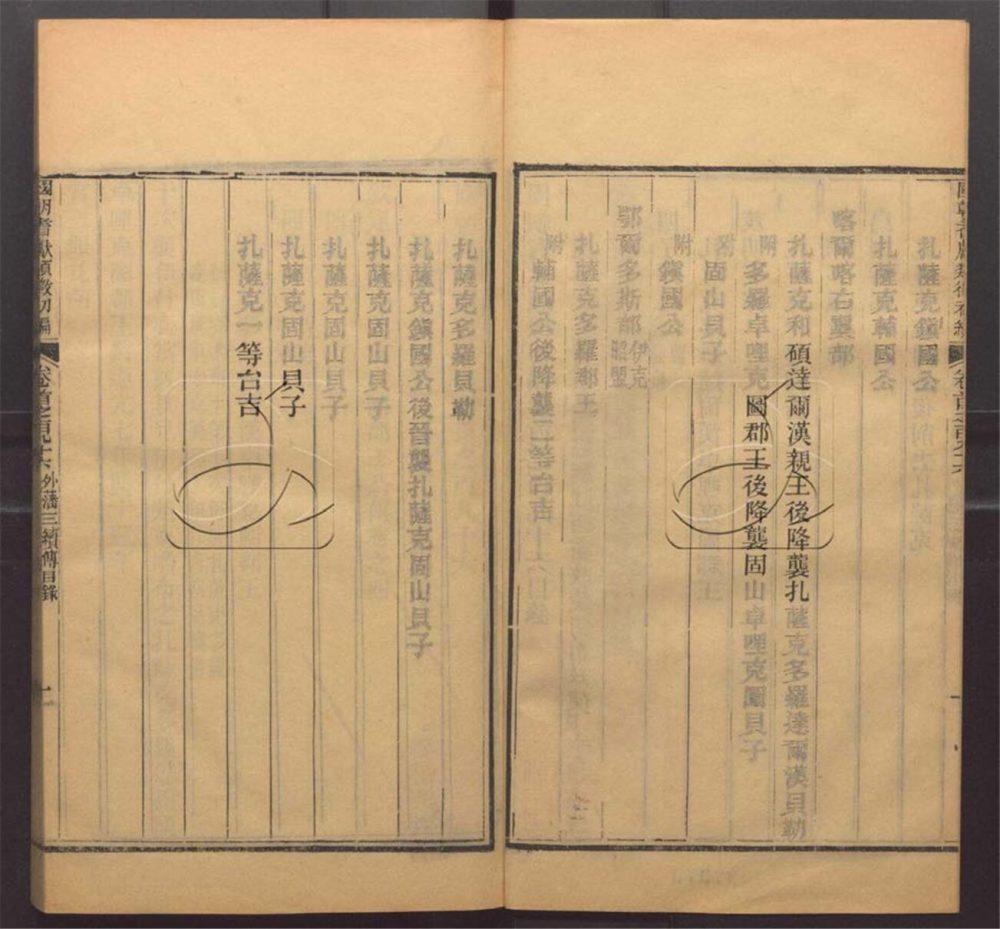 扎薩克鎮國公
扎薩克輔國公
喀爾喀右翼部
扎薩克和碩達爾漢親王後降襲扎薩克多羅達爾漢貝勒
附
多羅卓哩克圖郡王後降襲固山卓哩克圖貝子
固山貝子
附
鎮國公
附
鄂爾多斯部伊克昭盟
扎薩克多羅郡王
輔國公後降襲二等台吉
附
扎薩克多羅貝勒
扎薩克鎮國公後晉襲扎薩克固山貝子
扎薩克固山貝子
扎薩克固山貝子
扎薩克固山貝子
扎薩克一等台吉
國朝耆獻類徵初編
卷首之百十六 外藩三續傳目錄